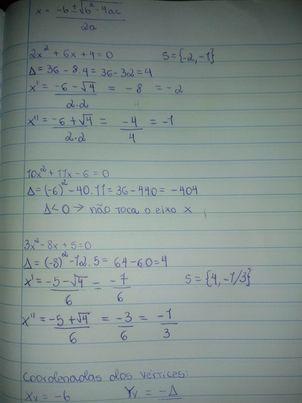 x = -b ± √b² - 4ac
2a
2x² + 6x + 4 = 0 S = {-2, -1}
Δ = 36 - 8.4 = 36 - 32 = 4
x' = -6 - √4 = -8 = -2
2.2 4
x'' = -6 + √4 = -4 = -1
2.2 4
10x² + 11x - 6 = 0
Δ = (-6)² - 40.11 = 36 - 440 = -404
Δ < 0 → não toca o eixo x
3x² - 8x + 5 = 0
Δ = (-8)² - 12.5 = 64 - 60 = 4
x' = -5 - √4 = -7 S = {4, -1/3}
6 6
x'' = -5 + √4 = -3 = -1
6 6 3
Coordenadas dos vértices:
Xv = -b Yv = -Δ